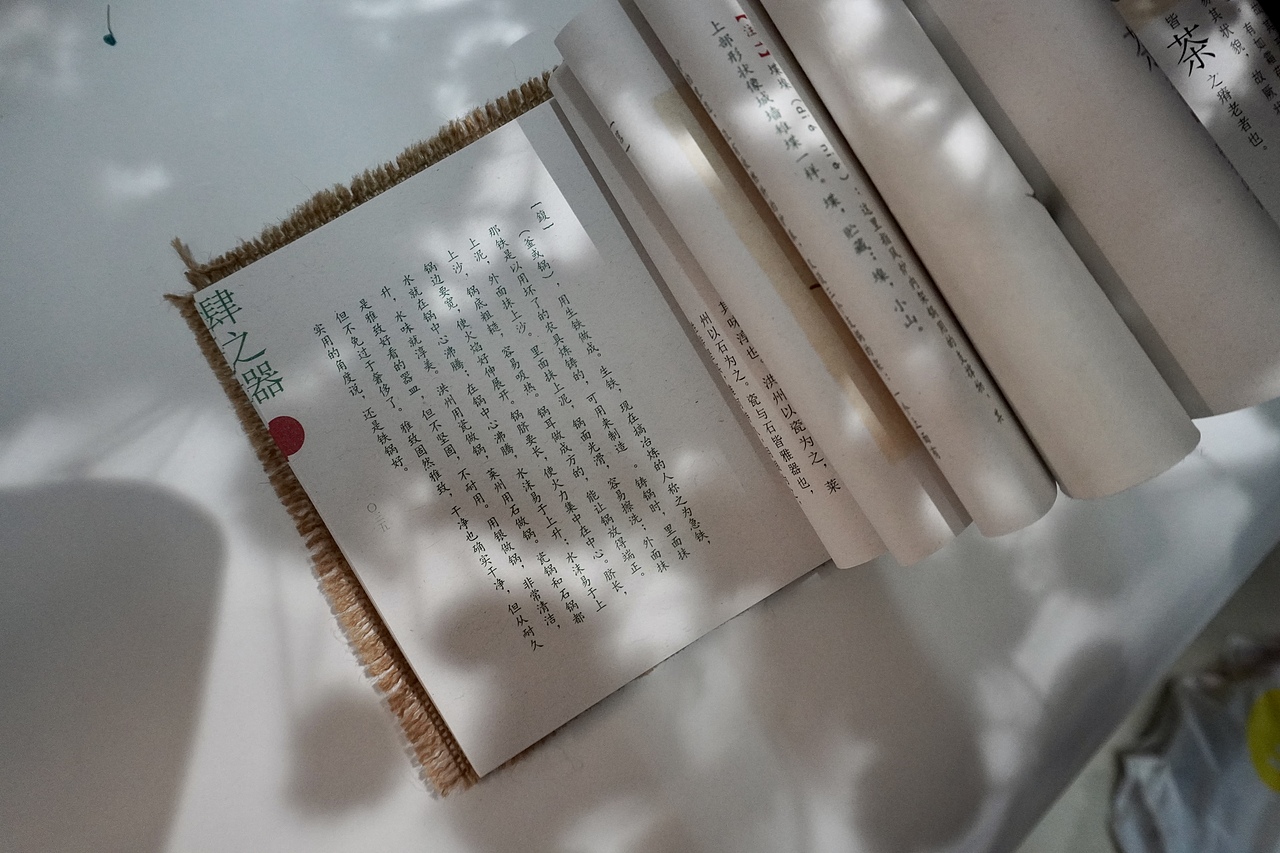 茶
之瘠老者也。
【注】
这里指风炉内架锅用的支撑物,其
上部形状像城墙雉堞一样。
小山。
其味淳也。洪州以瓷为之,莱
州以石为之。瓷与石皆雅器也,
(釜或锅),用生铁做成。生铁,现在搞冶炼的人称之为急铁,
那铁是以用坏了的农具炼铸的,可用来制造。铸锅时,里面抹
上泥,外面抹上沙。里面抹上泥,锅面光滑,容易擦洗;外面抹
上沙,锅底粗糙,容易吸热。锅耳做成方的,能让锅放得端正。
锅边要宽,使火焰好伸展开。锅脐要长,使火力集中在中心。脐长,
水就在锅中心沸腾,在锅中心沸腾,水沫易于上升,水沫易于上
升,水味就淳美。洪州用瓷做锅,莱州用石做锅。瓷锅和石锅都
是雅致好看的器皿,但不坚固,不耐用。用银做锅,非常清洁,
但不免过于奢侈了。雅致固然雅致,干净也确实干净,但从耐久
实用的角度说,还是铁锅好。
肆之器